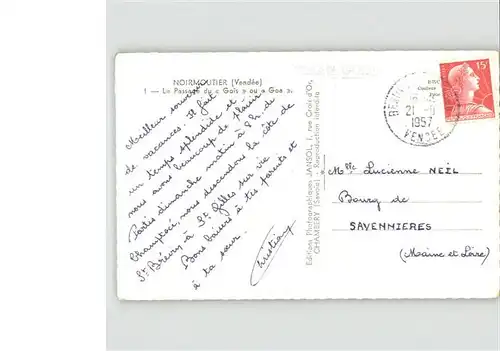 NOIRMOUTIER (Vendée)
1 — Le Passage du « Gois » ou « Goa ».
Meilleur souvenir
de vacances. Il fait
un temps splendide et
nous avons beaucoup de plaisir
Partis dimanche matin à 8h. de
Champtocé, nous descendons la côte de
St Brévin à St Gilles sur vie
Bons baisers à tes parents et
à ta sœur.
Christiany
Editions Photographiques JANSOL, 1, rue Croix d'Or,
CHAMBERY (Savoie) - Reproduction interdite
15F
21
1957
VENDEE
Mlle Lucienne NEËL
Bourg de
SAVENNIERES
(Maine et Loire)